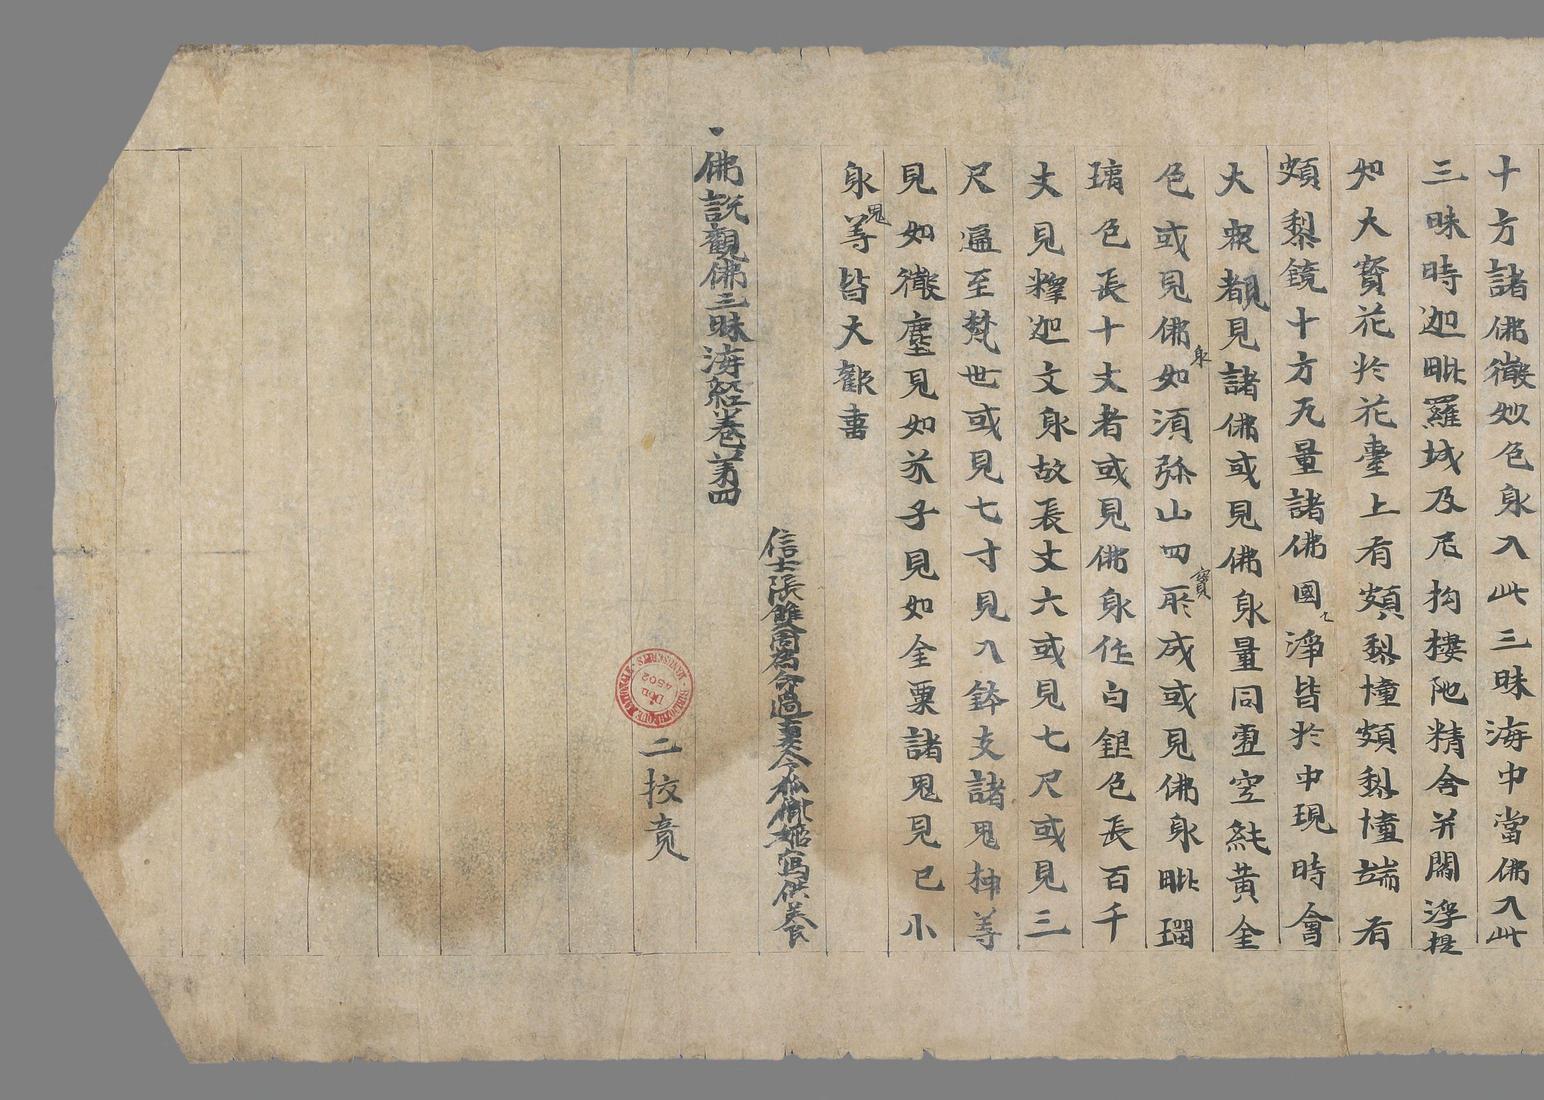 十方諸佛微妙色身入此三昧海中當佛入此
三昧時迦毗羅城及尼拘樓陁精舍并閻浮提
如大寶花於花臺上有頗梨幢頗梨幢端有
頗梨鏡十方无量諸佛國淨皆於中現時會
大衆都見諸佛或見佛身量同虛空純黃金
色或見佛身如湏弥山四寶所成或見佛身毗瑠
璃色長十丈者或見佛身作白銀色長百千
丈見釋迦文身故長丈六或見七尺或見三
尺遍至梵世或見七寸見入鉢支諸鬼神等
見如微塵見如芥子見如金粟諸鬼見已小
身鬼等皆大歡喜
信士張雙周為命過妻令狐 姬寫供養
佛說觀佛三昧海經卷苐四
二挍竟
BIBLIOTHEQUE NATIONALE MANUSCRITS
Don
4502